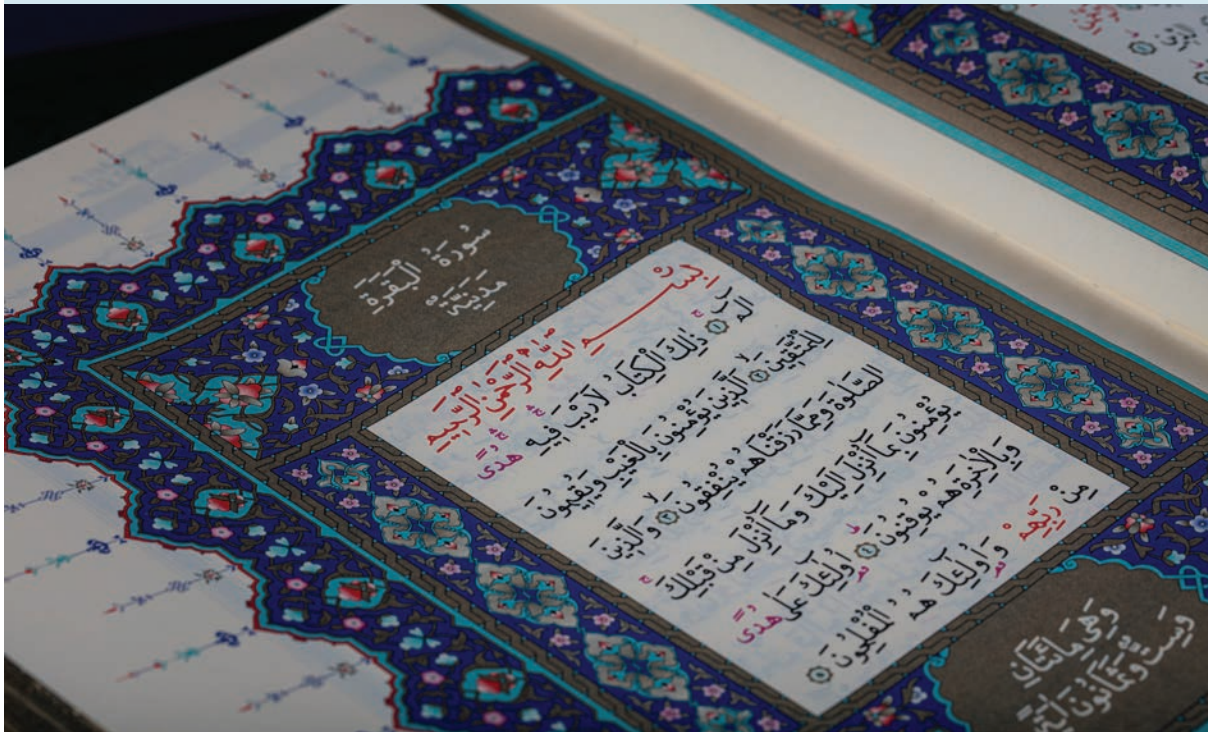 سُورَةُ الْبَقَرَةِ
مَدَنِيَّةٌ
بِسْمِ اللّٰهِ الرَّحْمٰنِ الرَّحِيمِ
الٓمٓ ﴿١﴾ ذٰلِكَ الْكِتَابُ لَا رَيْبَ فِيهِ هُدًى
لِلْمُتَّقِينَ ﴿٢﴾ اَلَّذِينَ يُؤْمِنُونَ بِالْغَيْبِ وَيُقِيمُونَ
الصَّلٰوةَ وَمِمَّا رَزَقْنَاهُمْ يُنْفِقُونَ ﴿٣﴾ وَالَّذِينَ
يُؤْمِنُونَ بِمَٓا اُنْزِلَ اِلَيْكَ وَمَٓا اُنْزِلَ مِنْ قَبْلِكَ
وَبِالْاٰخِرَةِ هُمْ يُوقِنُونَ ﴿٤﴾ اُولٰٓئِكَ عَلٰى هُدًى
مِنْ رَبِّهِمْ وَاُولٰٓئِكَ هُمُ الْمُفْلِحُونَ ﴿٥﴾
وَهِيَ مِائَتَانِ
وَسِتٌّ وَثَمَانُونَ